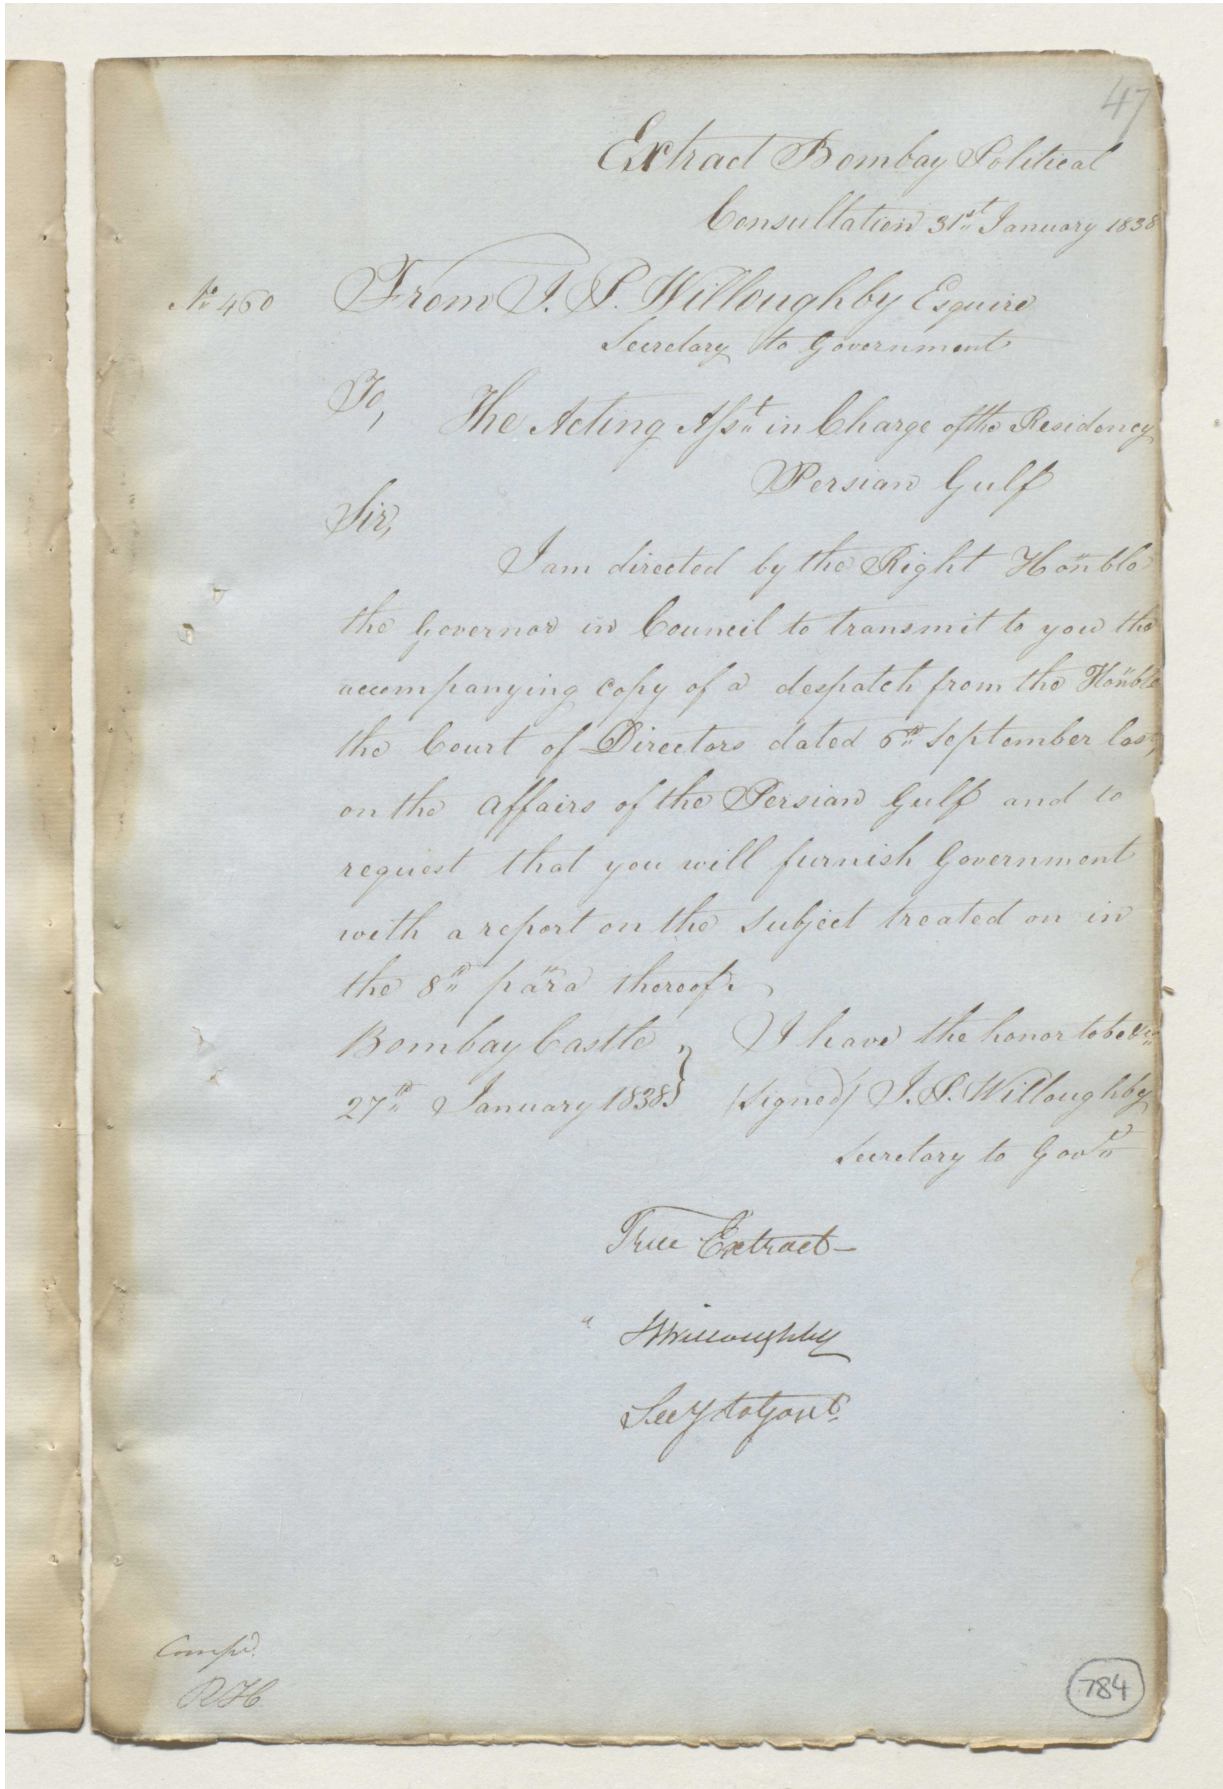 47
Extract Bombay Political
Consultation 31st January 1838
No 460 From J. P. Willoughby Esquire
Secretary to Government
To,
The Acting Asst in Charge of the Residency
Persian Gulf
Sir,
I am directed by the Right Honble
the Governor in Council to transmit to you the
accompanying copy of a despatch from the Honble
the Court of Directors dated 6th September last,
on the affairs of the Persian Gulf and to
request that you will furnish Government
with a report on the subject treated on in
the 8th para thereof.
Bombay Castle } I have the honor to be &ca
27th January 1838 } (signed) J. P. Willoughby
Secretary to Govt
True Extract—
JPWilloughby
Secy to Govt
Compd.
RH
784